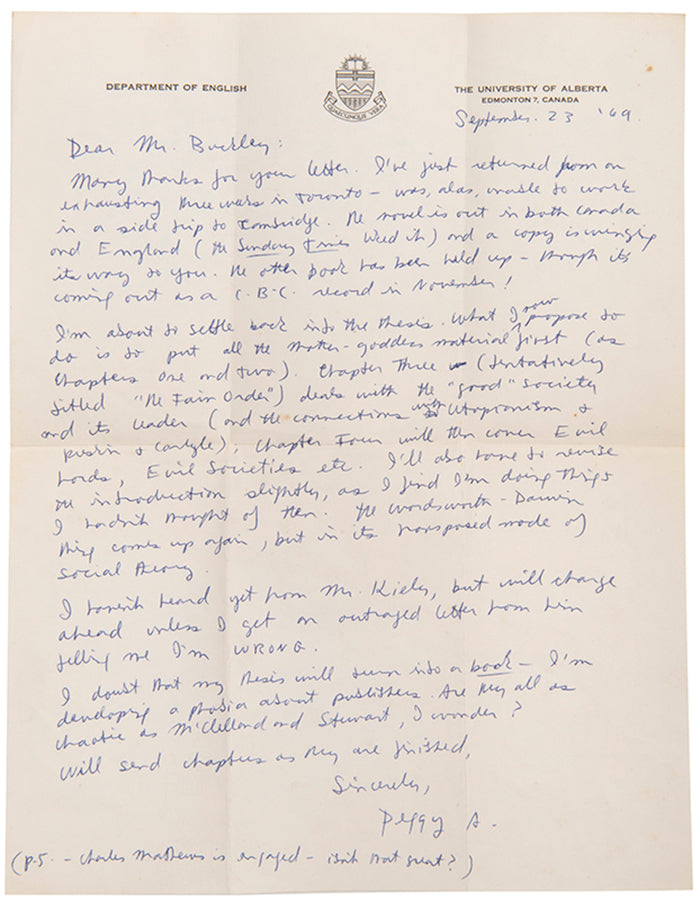 DEPARTMENT OF ENGLISH
QUAECUMQUE VERA
THE UNIVERSITY OF ALBERTA
EDMONTON 7, CANADA
September. 23 '69.
Dear Mr. Buckley:
Many thanks for your letter. I've just returned from an
exhausting three weeks in Toronto – was, alas, unable to work
in a side trip to Cambridge. The novel is out in both Canada
and England (the Sunday Times liked it) and a copy is winging
its way to you. The other book has been held up – though it's
coming out as a C.B.C. record in November!
I'm about to settle back into the thesis. What I now propose to
do is to put all the mother-goddess material first (as
Chapters One and Two). Chapter Three (tentatively
titled "The Fair Order") deals with the "good" society
and its leader (and the connections with Utopianism &
Ruskin & Carlyle); Chapter Four will then cover Evil
Lords, Evil Societies etc. I'll also have to revise
the introduction slightly, as I find I'm doing things
I hadn't thought of then. The Wordsworth – Darwin
thing comes up again, but in its transposed mode of
social theory.
I haven't heard yet from Mr. Kiely, but will charge
ahead unless I get an outraged letter from him
telling me I'm WRONG.
I doubt that my thesis will turn into a book – I'm
developing a phobia about publishers. Are they all as
chaotic as McClelland and Stewart, I wonder?
Will send chapters as they are finished,
Sincerely,
Peggy A.
(P.S. – Charles Mathews is engaged – isn't that great?)